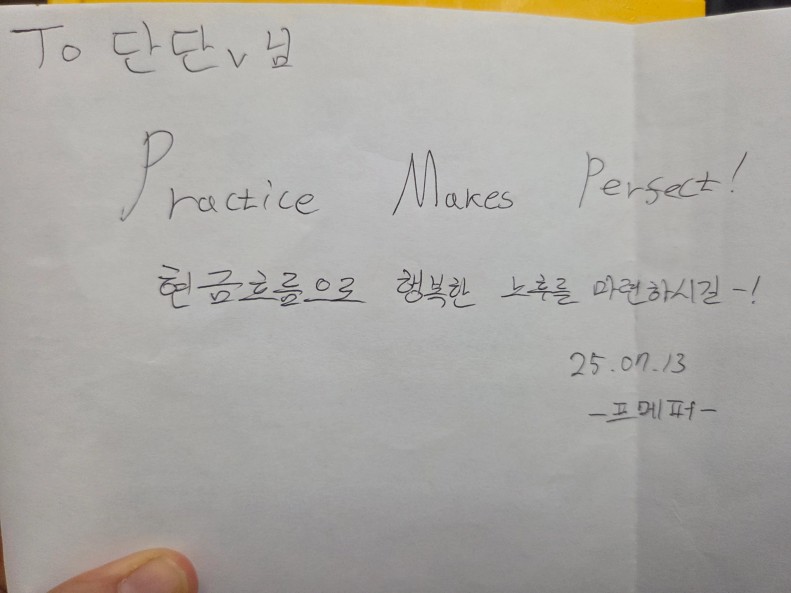 To 단단v님
Practice Makes Perfect!
현금흐름으로 행복한 노후를 마련하시길-!
25.07.13
-프메퍼-